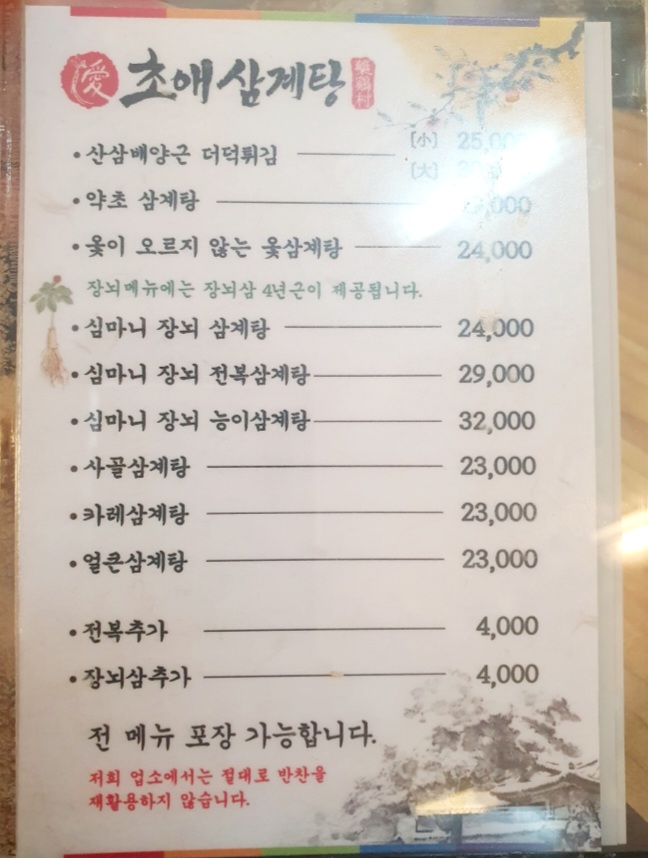 愛 초애 삼계탕 藥鷄村
• 산삼배양근 더덕튀김 [小] 25,000
[大]
• 약초 삼계탕
• 옻이 오르지 않는 옻삼계탕 24,000
장뇌메뉴에는 장뇌삼 4년근이 제공됩니다.
• 심마니 장뇌 삼계탕 24,000
• 심마니 장뇌 전복삼계탕 29,000
• 심마니 장뇌 능이삼계탕 32,000
• 사골삼계탕 23,000
• 카레삼계탕 23,000
• 얼큰삼계탕 23,000
• 전복추가 4,000
• 장뇌삼추가 4,000
전 메뉴 포장 가능합니다.
저희 업소에서는 절대로 반찬을
재활용하지 않습니다.